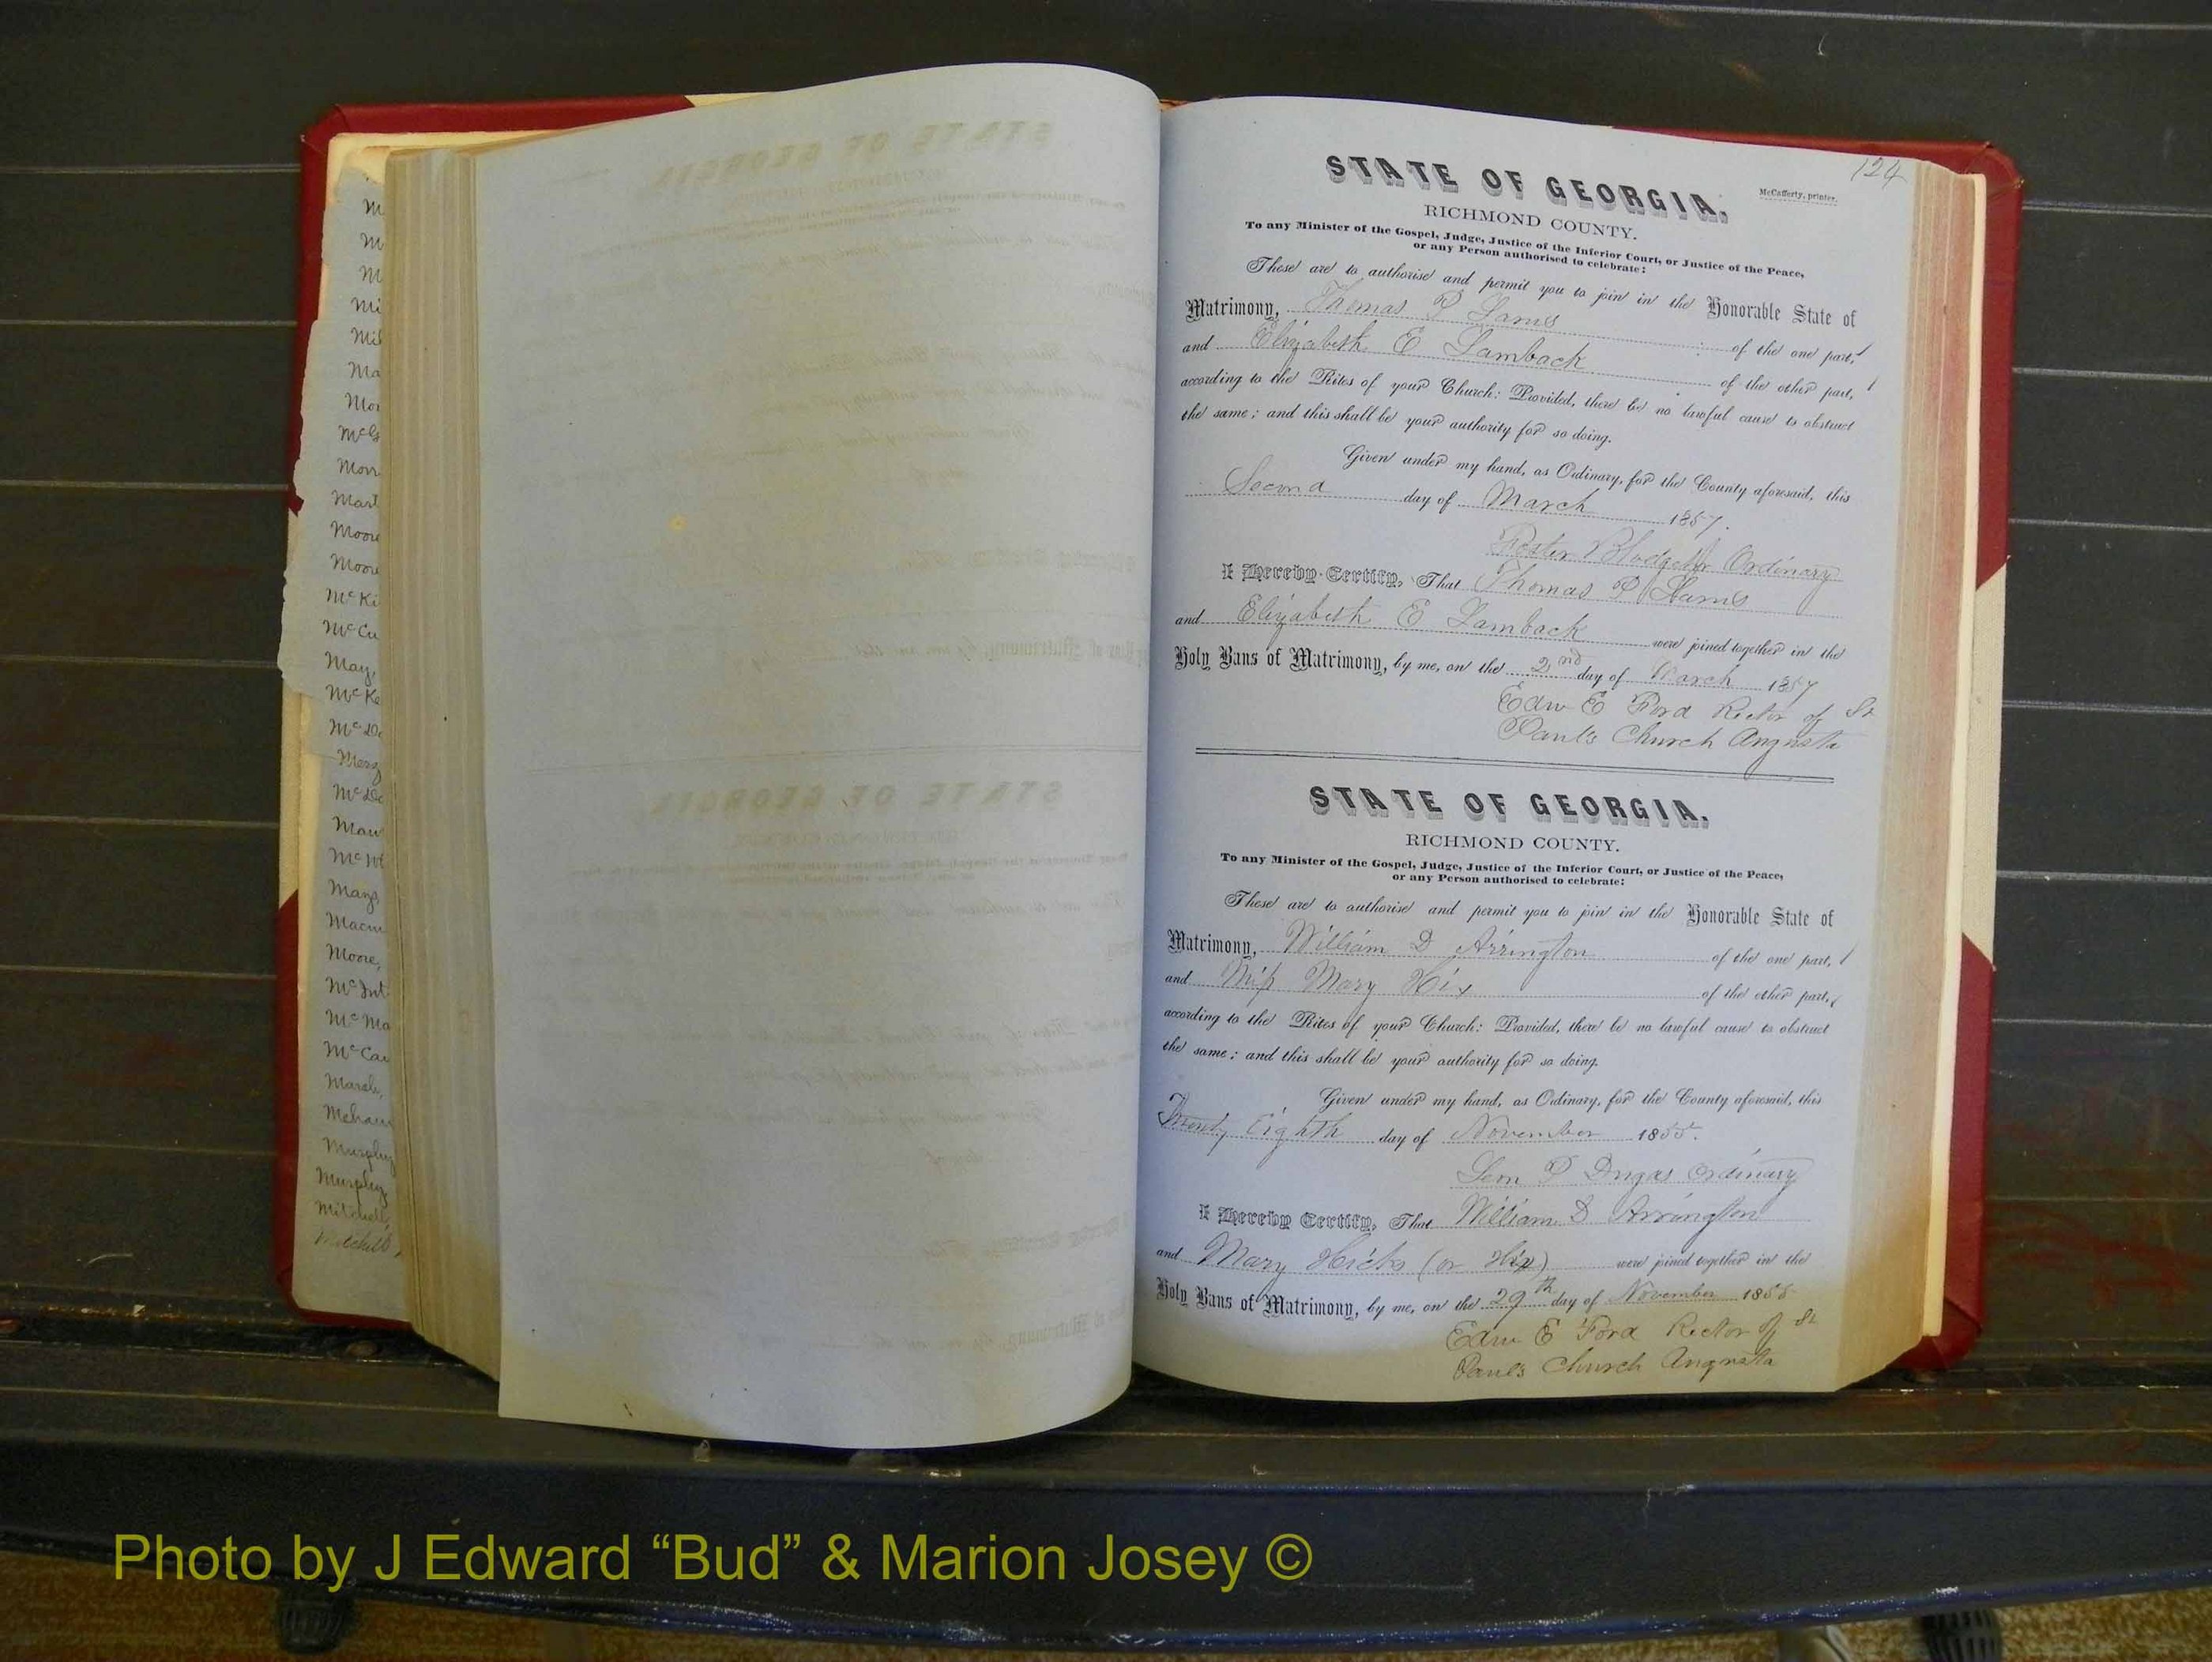 M
M
M
Mi
Mil
Ma
Mor
McG
Morr
Mart
Moore
Moore
McKi
McCu
May,
McKe
McDo
Merg
McDo
Maw
McW
Mays
Macm
Moore,
McInt
McMa
McCar
Marsh,
Mehaw
Murphy
Murphy
Mitchell,
Mitchell,
124
STATE OF GEORGIA.
McCafferty, printer.
RICHMOND COUNTY.
To any Minister of the Gospel, Judge, Justice of the Inferior Court, or Justice of the Peace,
or any Person authorised to celebrate:
These are to authorise and permit you to join in the Honorable State of
Matrimony, Thomas P of the one part,
and Elizabeth E Lamback of the other part,
according to the Rites of your Church: Provided, there be no lawful cause to obstruct
the same; and this shall be your authority for so doing.
Given under my hand, as Ordinary, for the County aforesaid, this
Second day of March 1857.
Foster Blodget Jr Ordinary
I Hereby Certify, That Thomas P
and Elizabeth E Lamback were joined together in the
Holy Bans of Matrimony, by me, on the 2nd day of March 1857
Edw E Ford Rector of St
Paul's Church Augusta
STATE OF GEORGIA.
RICHMOND COUNTY.
To any Minister of the Gospel, Judge, Justice of the Inferior Court, or Justice of the Peace,
or any Person authorised to celebrate:
These are to authorise and permit you to join in the Honorable State of
Matrimony, William D Arrington of the one part,
and Miss Mary Hix of the other part,
according to the Rites of your Church: Provided, there be no lawful cause to obstruct
the same; and this shall be your authority for so doing.
Given under my hand, as Ordinary, for the County aforesaid, this
Twenty Eighth day of November 1855.
Lem P Dugas Ordinary
I Hereby Certify, That William D Arrington
and Mary Hicks (or Hix) were joined together in the
Holy Bans of Matrimony, by me, on the 29th day of November 1855
Edw E Ford Rector of St
Paul's Church Augusta
Photo by J Edward “Bud” & Marion Josey ©